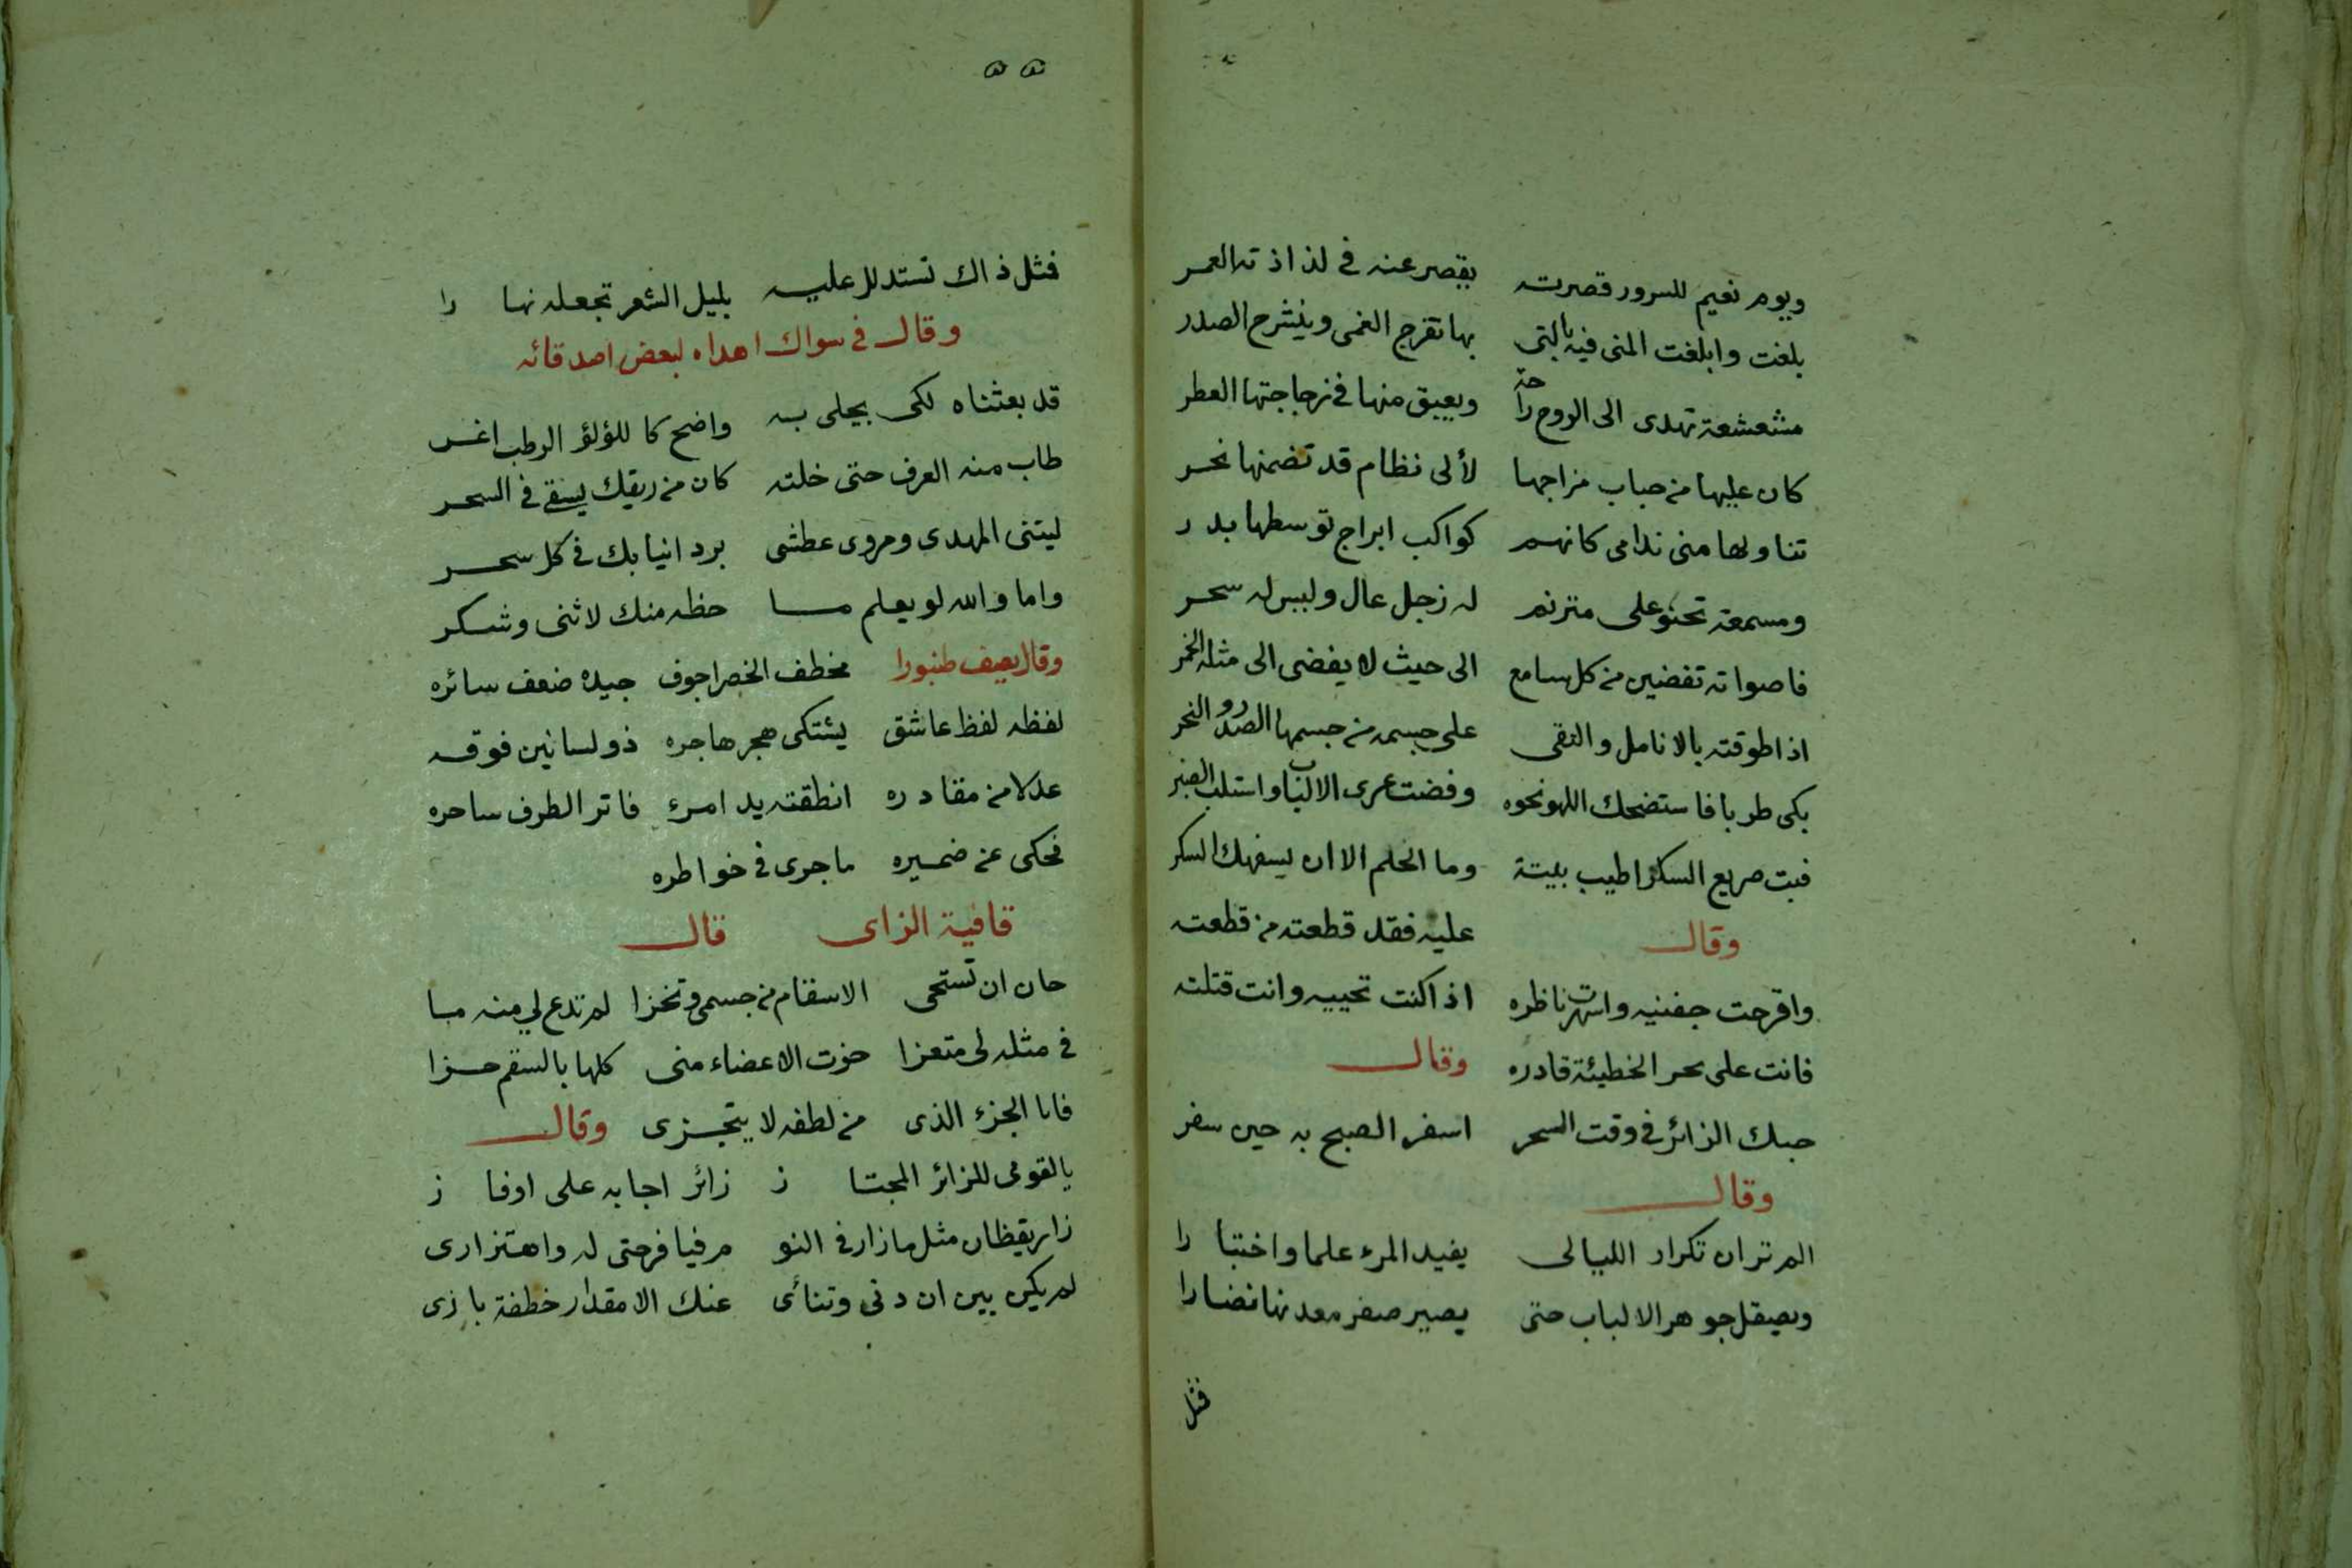 ويوم نعيم للسرور قصرته يقصر عنه في لذاذته العمر
بلغت وابلغت المنى فيه بالتى بها تفرج الغمى وينشرح الصدر
مشعشعة تهدى الى الروح راحة ويعبق منها في زجاجتها العطر
كان عليها من حباب مزاجها لألى نظام قد تضمنها نحر
تناولها منى ندامى كانهم كواكب ابراج توسطها بدر
ومسمعة تحنو على مترنم له زجل عال وليس له سحر
فاصواته تفضين من كل سامع الى حيث لا يفضى الى مثله الخمر
اذا طوقته بالانامل والتقى على جسمه من جسمها الصدر والنحر
بكى طربا فاستضحك اللهو نحوه وفضت عرى الالباب واستلب الصبر
فبت صريع السكر اطيب بليتة وما الحلم الا ان يسفهك السكر
وقال عليه فقد قطعته من قطعته
واقرحت جفنيه واسهرت ناظره اذا كنت تحييه وانت قتلته
فانت على بحر الخطيئة قادره وقال
حبك الزائر في وقت السحر اسفر الصبح به حين سفر
وقال
الم تر ان تكرار الليالى يفيد المرء علما واختبارا
ويصيقل جوهر الالباب حتى يصير صفر معدنها نضارا
فثل
٥٥
فثل ذاك تستدلل عليه بليل الشعر تجعله نهارا
وقال في سواك اهداه لبعض اصدقائه
قد بعثناه لكى يجلى به واضح كا للؤلؤ الرطب اغر
طاب منه العرف حتى خلته كان من ريقك يسقى في السحر
ليتنى المهدى ومروى عطشى برد انيابك في كل سحر
واما والله لو يعلم ما حظه منك لاثنى وشكر
وقال يصف طنبورا مخطف الخصر اجوف جيده ضعف سائره
لفظه لفظ عاشق يشتكى هجر هاجره ذو لسانين فوقه
عدلا من مقادره انطقته يد امرء فاتر الطرف ساحره
فحكى عن ضميره ما جرى في خواطره
قافية الزاى قال
حان ان تستحى الاسقام من جسمى وتخزا لم تدع لي منه ما
في مثله لى متعزا حزت الاعضاء منى كلها بالسقم حزا
فانا الجزء الذى من لطفه لا يتجزى وقال
يالقومى للزائر المجتاز زائر اجابه على اوفاز
زار يقظان مثل ما زار في النو م فيا فرحتى له واهتزازى
لم يكن بين ان دنى وتنائى عنك الا مقدار خطفة بازى